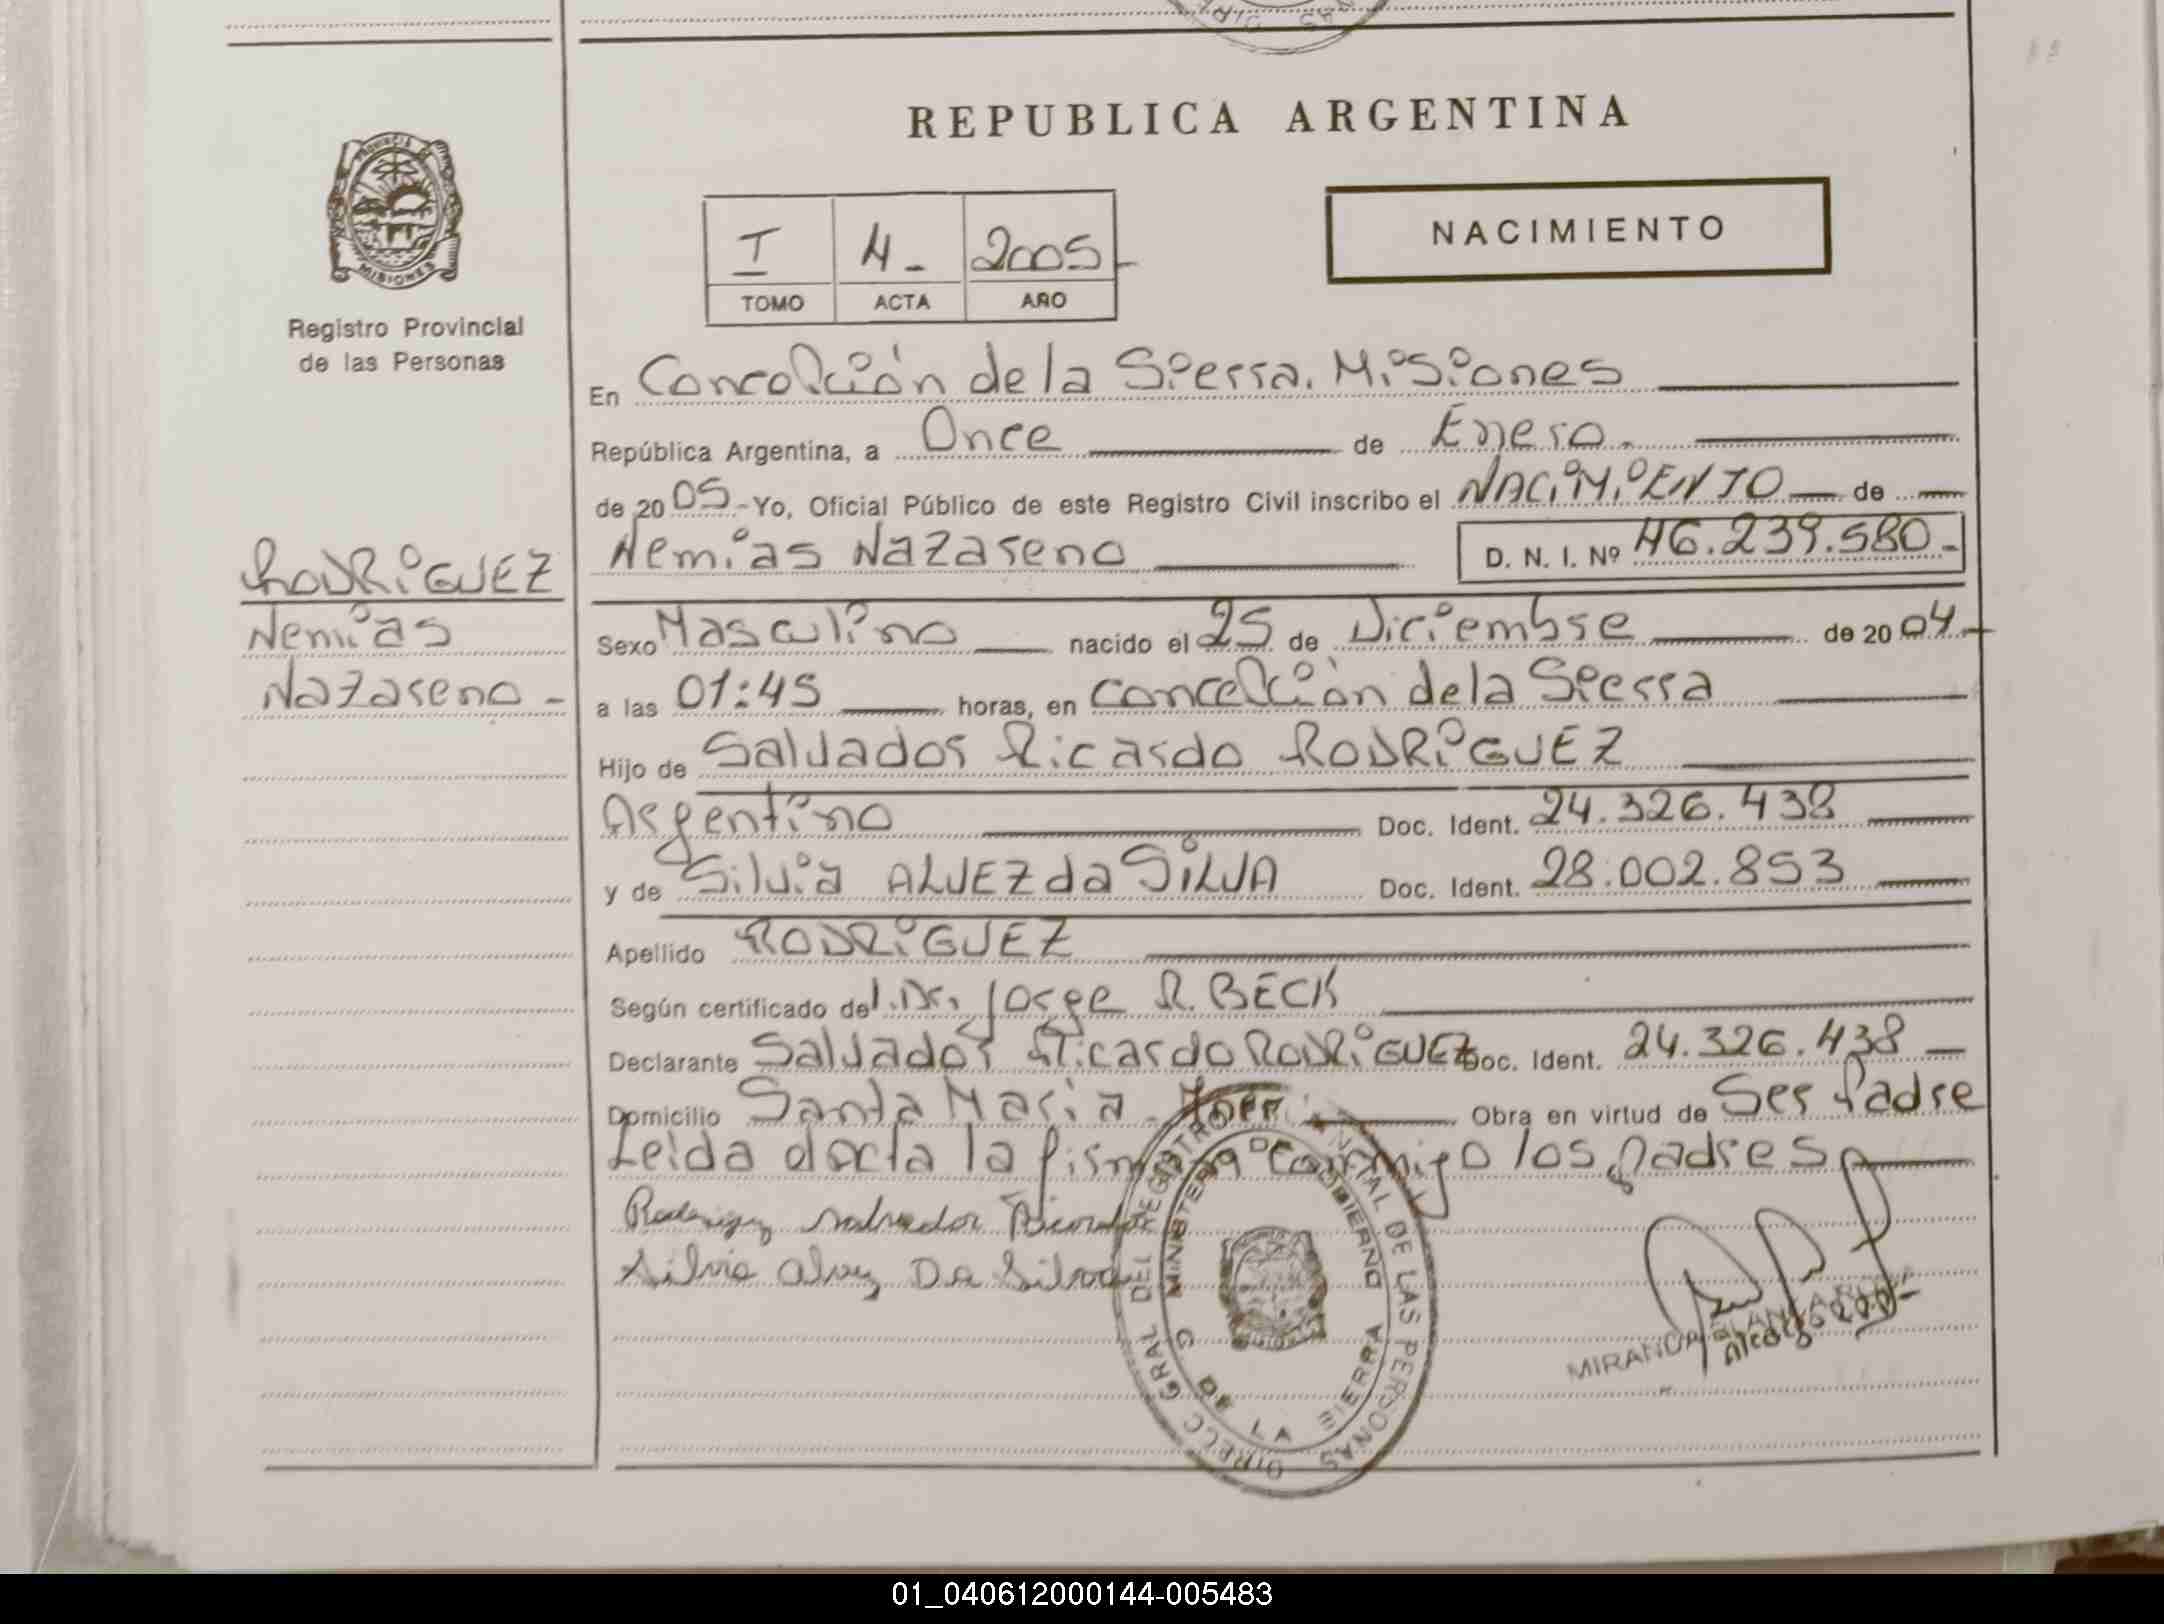 REPUBLICA ARGENTINA
PROVINCIA DE MISIONES
Registro Provincial
de las Personas
I 4- 2005-
TOMO ACTA AÑO
NACIMIENTO
En Concepción de la Sierra. Misiones
República Argentina, a Once de Enero.
de 2005- Yo, Oficial Público de este Registro Civil inscribo el NACIMIENTO de
Nemias Nazareno D. N. I. Nº 46.239.580-
RODRIGUEZ
Nemias
Nazareno -
Sexo Masculino nacido el 25 de Diciembre de 2004-
a las 01:45 horas, en Concepción de la Sierra
Hijo de Salvador Ricardo RODRIGUEZ
Argentino Doc. Ident. 24.326.438
y de Silvia ALVEZ da SILVA Doc. Ident. 28.002.853
Apellido RODRIGUEZ
Según certificado del.Dr. Jorge R. BECK
Declarante Salvador Ricardo RODRIGUEZ Doc. Ident. 24.326.438
Domicilio Santa Maria - Obra en virtud de Ser Padre
Leida el acta la firman Conmigo los padres
Rodriguez Salvador Ricardo
Silvia Alvez Da Silva
DIRECC GRAL DEL REGISTRO DE LAS PERSONAS
MINISTERIO GOBIERNO
DE LA SIERRA
MIRANDA
01_040612000144-005483